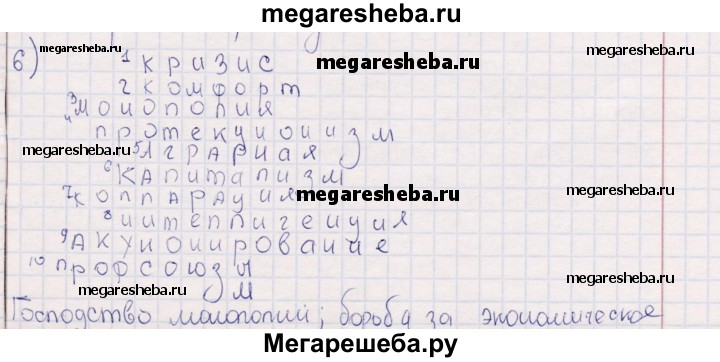 megaresheba.ru
6) 1 кризис
megaresheba.ru
megaresheba.ru
megaresheba.ru
2 комфорт
3 монополия
megaresheba.ru
4 протекционизм
megaresheba.ru
5 Аграрная
6 капитализм
7 колларация
megaresheba.ru
megaresheba.ru
8 интеллигенция
9 Акционирование
10 профсоюзы
megaresheba.ru
megaresheba.ru
м
Господство монополий; борьба за экономическое
Мегарешеба.ру